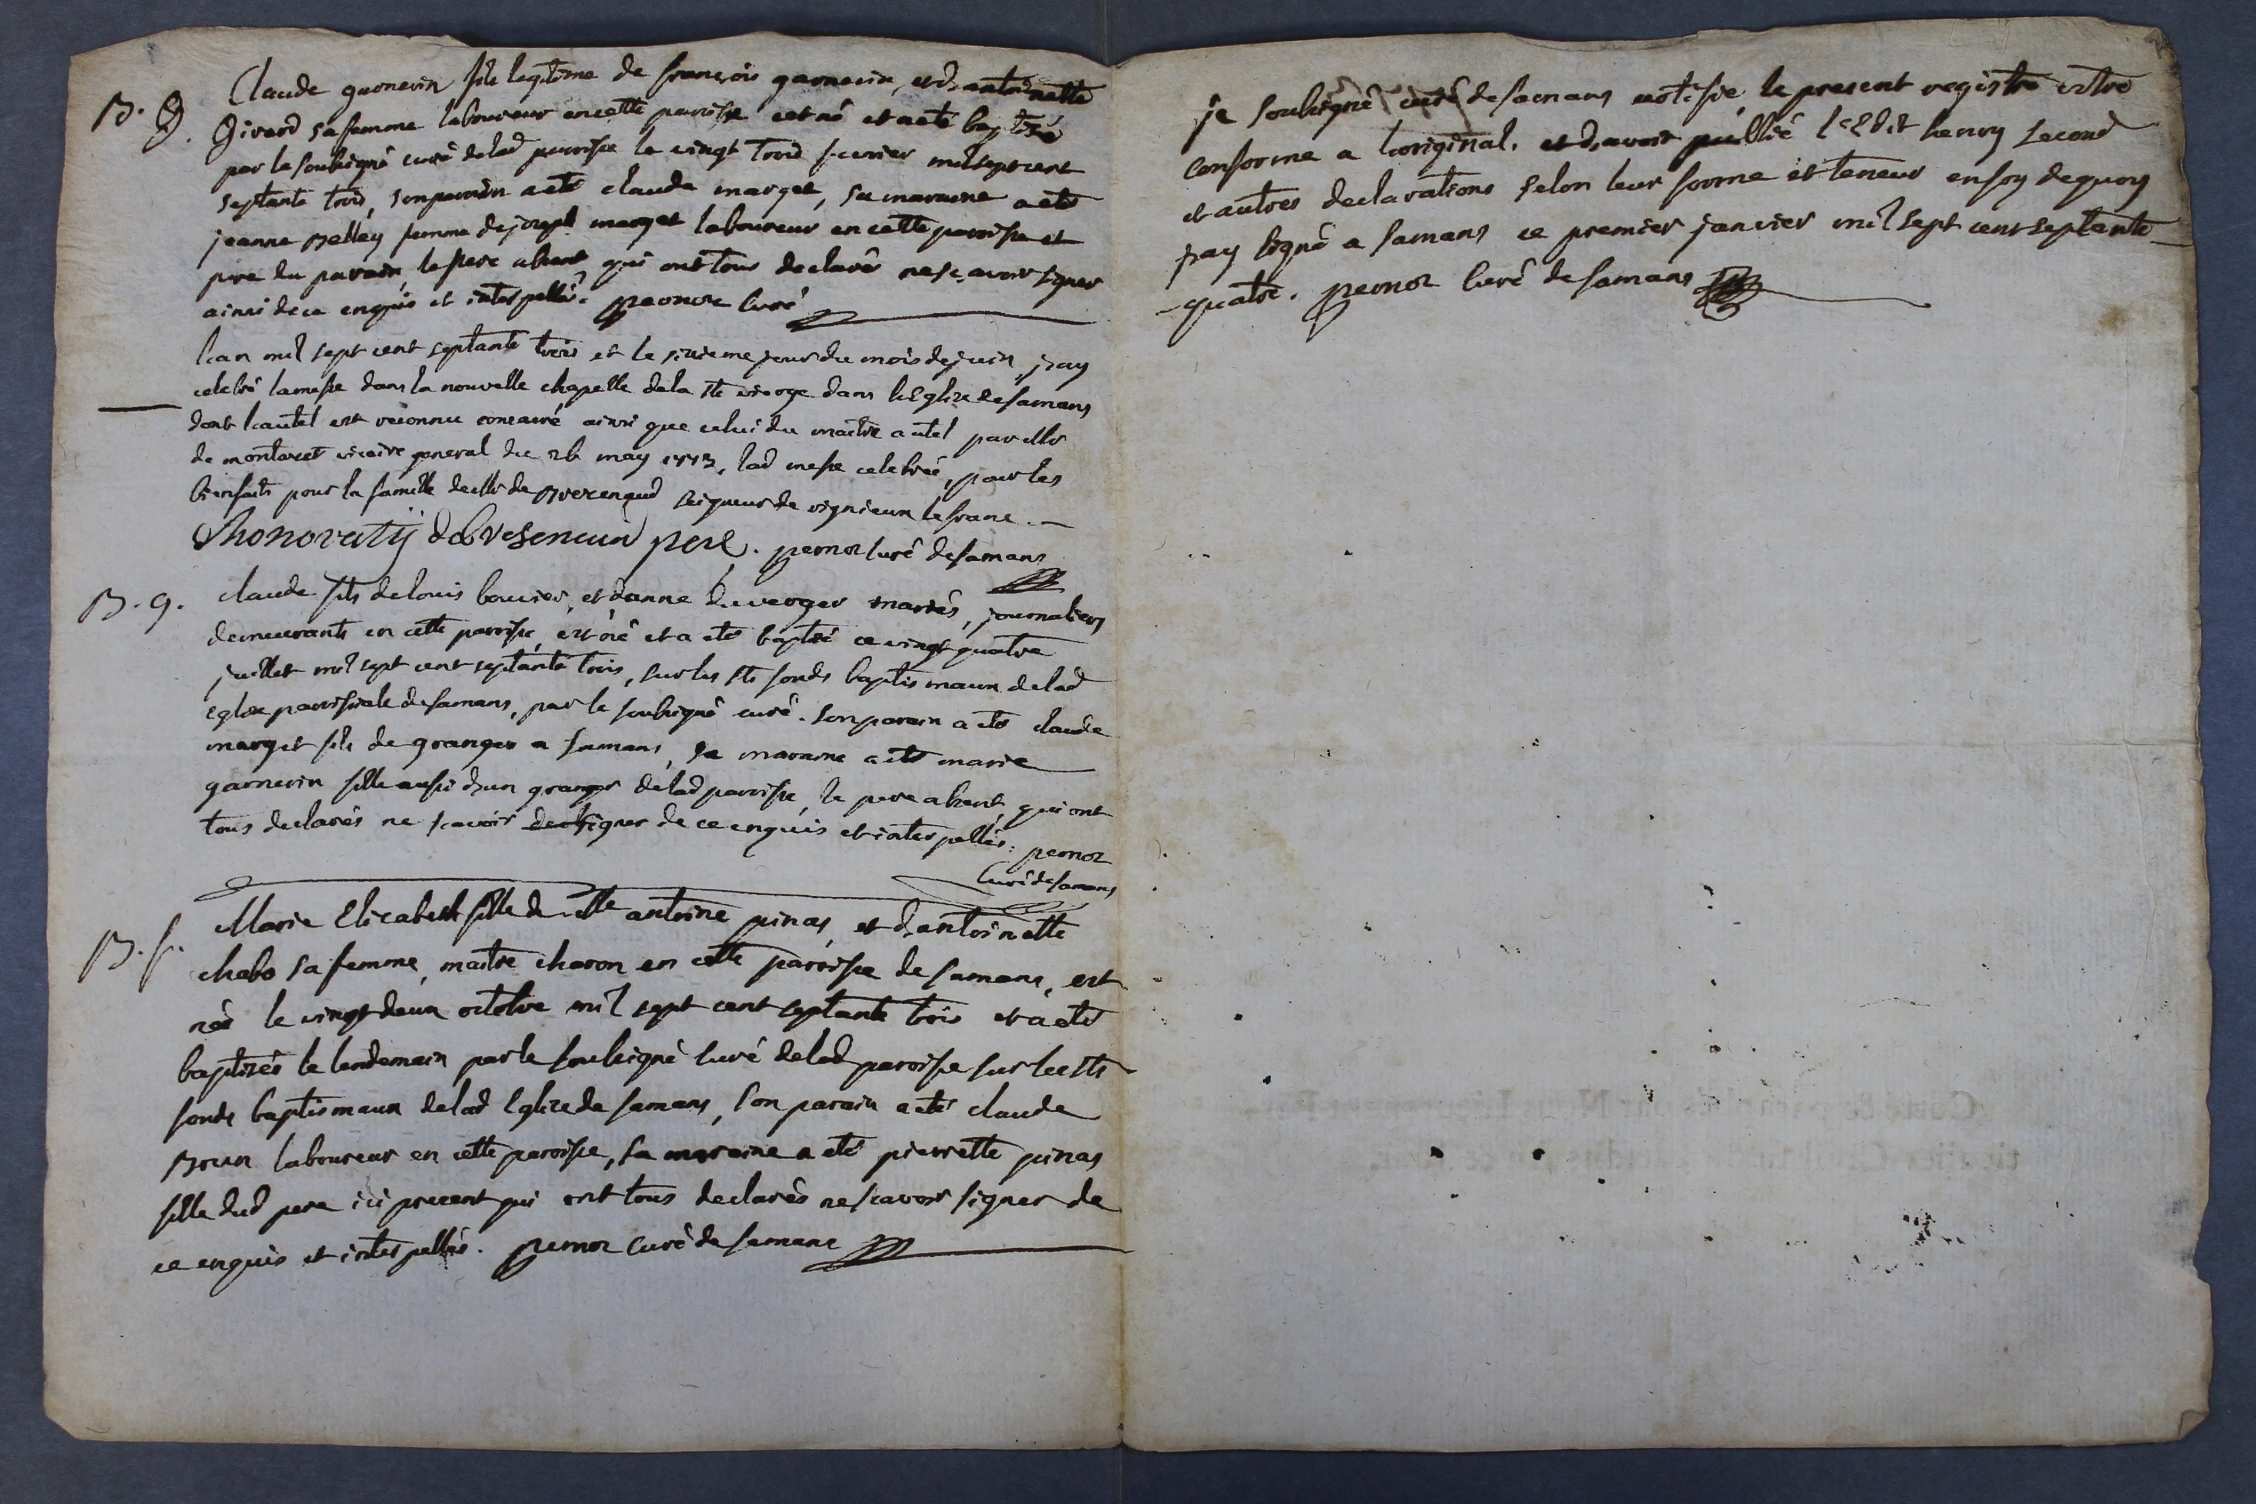 B. g. Claude garnerin fils legitime de françois garnerin, et d'antoinette
Girard sa femme laboureur en cette paroisse est né et a eté baptisé
par le soubsigné curé de lad paroisse le vingt trois fevrier mil sept cent
septante trois, son parain a eté claude marget, sa maraine a eté
jeanne Belley femme de joseph marget laboureur en cette paroisse et
pere du parain, le pere absent qui ont tous declarés ne sçavoir signer
ainsi de ce enquis et interpellés. pernoz curé
l'an mil sept cent septante trois et le sixieme jour du mois de juin, j'ay
celebré la messe dans la nouvelle chapelle de la ste vierge dans l'Eglise de samans
dont l'autel est reconnu consacré ainsi que celui du maitre autel par Mr
de montaret vicaire general du 26 may 1773, lad messe celebrée, pour les
bienfaits pour la famille de Mr de Bresenaud seigneur de vignieux le franc.
de Bresenaud pere. pernoz curé de samans
B. g. claude fils de louis bouvier, et d'anne duverger mariés, journaliers
demeurants en cette paroisse, est né et a eté baptisé ce vingt quatre
juillet mil sept cent septante trois, sur les sts fonds baptismaux de lad
eglise paroissiale de samans, par le soubsigné curé. son parain a eté claude
marget fils de granger a samans, sa maraine a eté marie
garnerin fille aussi d'un granger de lad paroisse, le pere absent, qui ont
tous declarés ne scavoir signer de ce enquis et interpellés. pernoz
curé de samans
B. f. Marie Elisabeth fille de antoine pinas, et d'antoinette
chabo sa femme, maitre charon en cette paroisse de samans, est
née le vingt deux octobre mil sept cent septante trois et a eté
baptisée le lendemain par le soubsigné curé de lad paroisse sur les sts
fonds baptismaux de lad Eglise de samans, son parain a eté claude
Brun laboureur en cette paroisse, sa maraine a eté pierrette pinas
fille dud pere ici present qui ont tous declarés ne scavoir signer de
ce enquis et interpellés. pernoz curé de samans
je soubsigné curé de samans certifie le present registre etre
conforme a l'original. et d'avoir publié l'edit henry second
et autres declarations selon leur forme et teneur en foy de quoy
j'ay signé a samans ce premier janvier mil sept cent septante
quatre. pernoz curé de samans